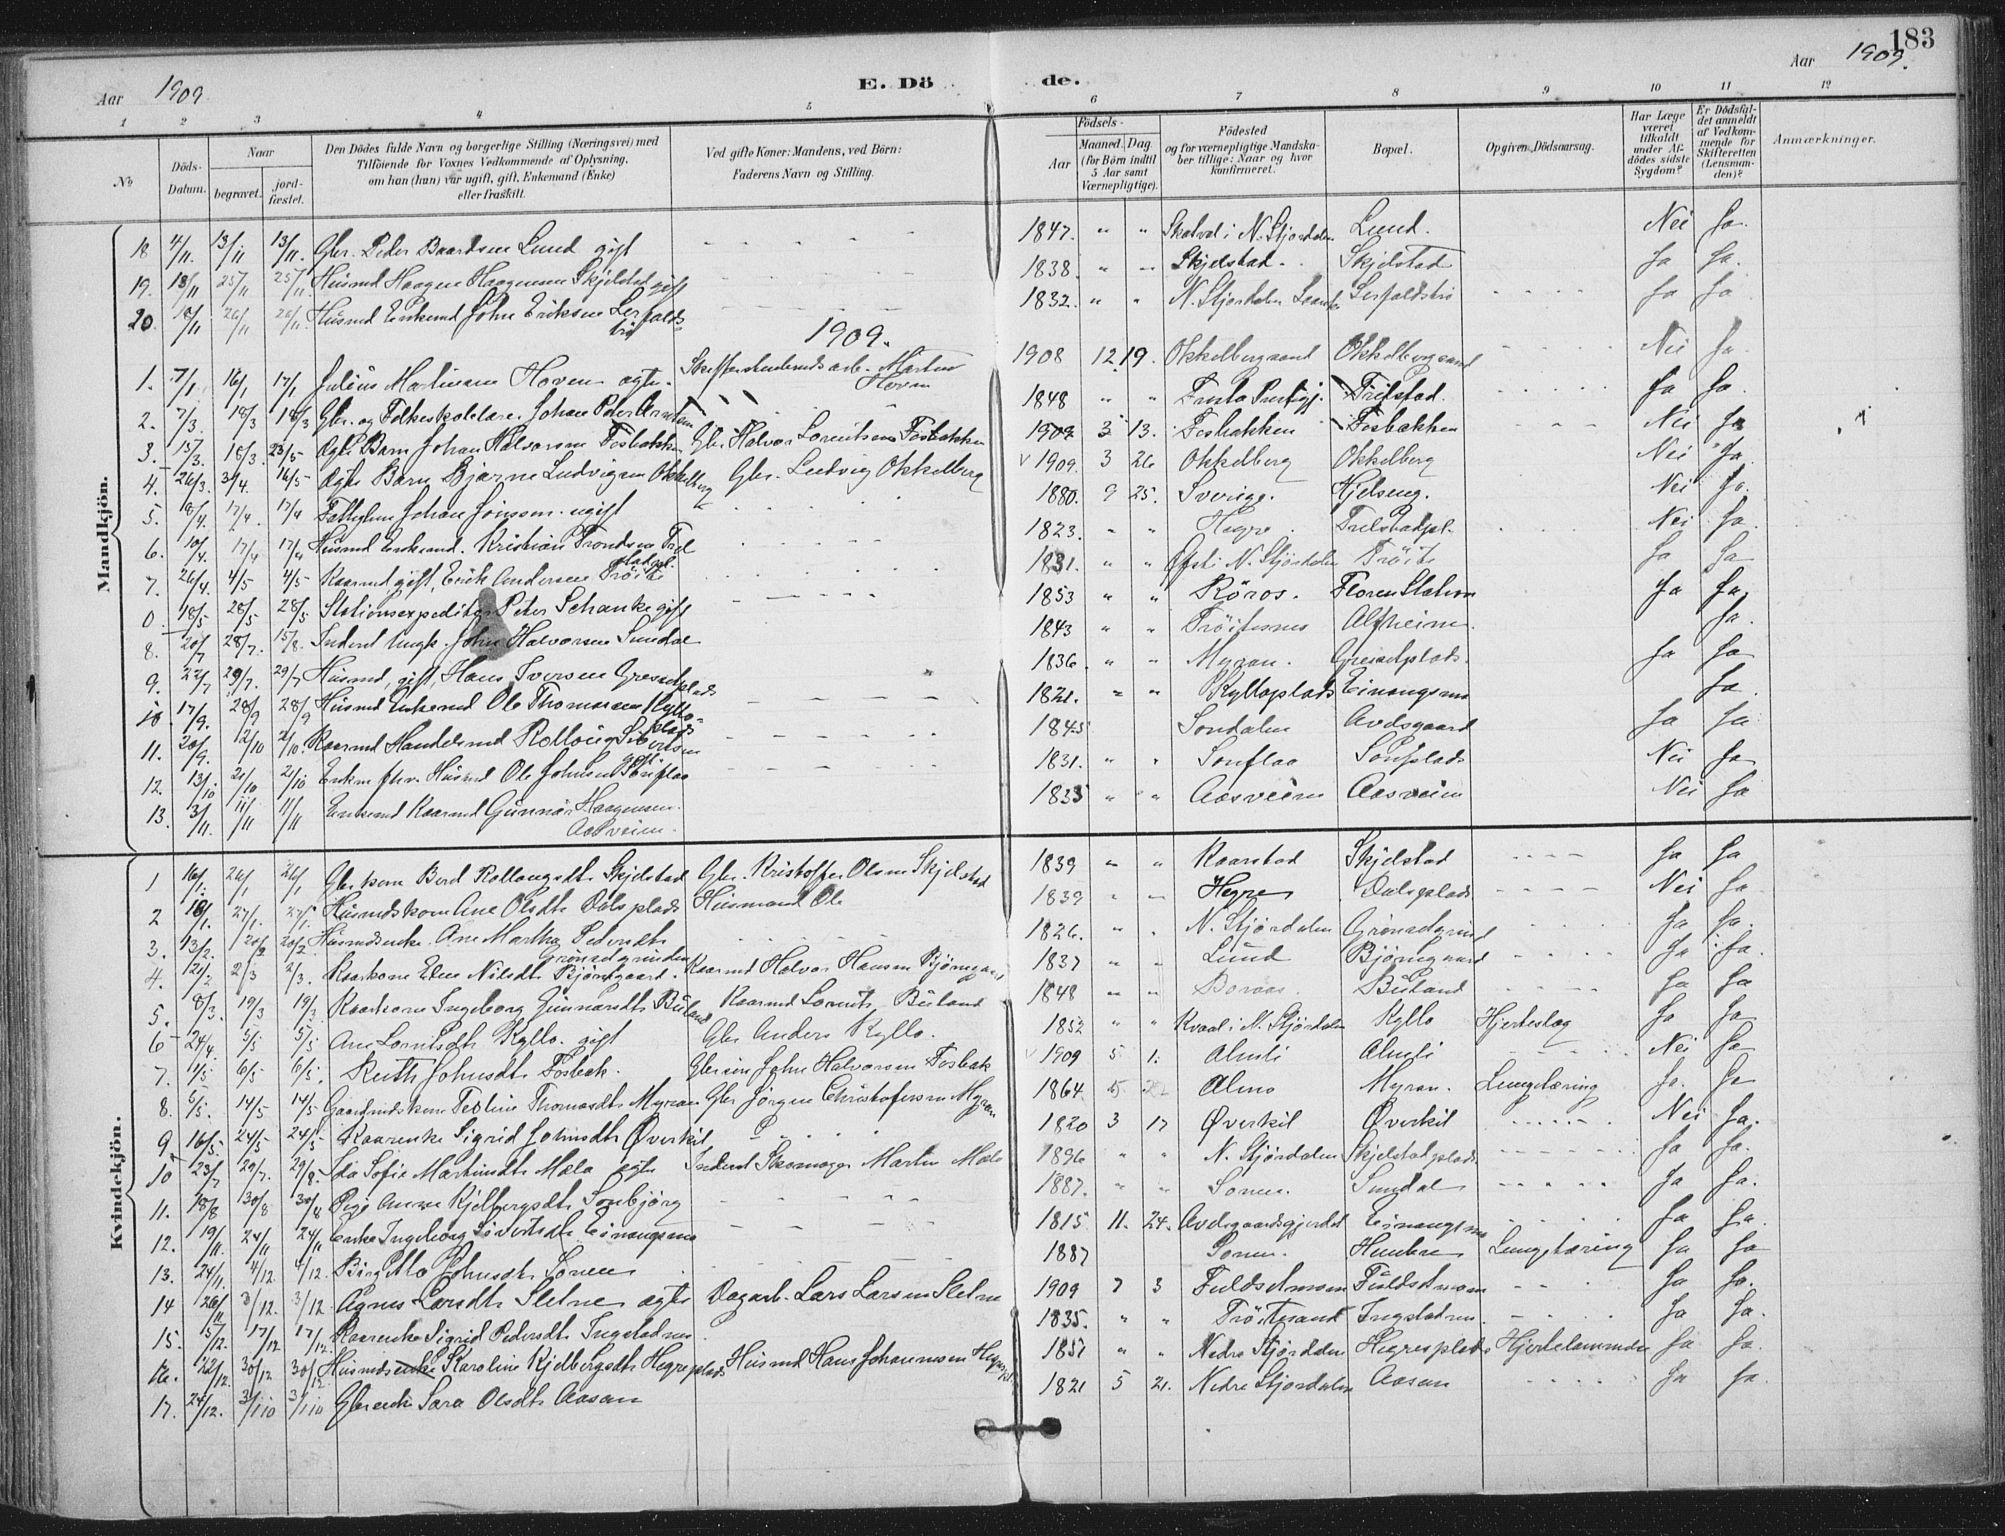 183
Aar 1909. E. Döde. Aar 1909.
1 2 3 4 5 6 7 8 9 10 11 12
No
Döds-Datum.
Naar
begravet.
jord-fæstet.
Den Dödes fulde Navn og borgerlige Stilling (Næringsvei) med
Tilföiende for Voxnes Vedkommende af Oplysning,
om han (hun) var ugift, gift, Enkemand (Enke)
eller fraskilt.
Ved gifte Koner: Mandens, ved Börn:
Faderens Navn og Stilling.
Födsels-
Aar
Maaned. Dag
(for Börn indtil
5 Aar samt
Værnepligtige).
Födested
og for værnepligtige Mandska-
ber tillige: Naar og hvor
konfirmeret.
Bopæl.
Opgiven Dödsaarsag.
Har Læge
været
tilkaldt
under Af-
dödes sidste
Sygdom?
Er Dödsfal-
det anmeldt
af Vedkom-
mende for
Skifteretten
(Lensman-
den)?
Anmærkninger.
Mandkjön.
18 4/11. 13/11 13/11. Gbr. Peder Baardsen Lund gift 1847. " " Skatval i N. Stjørdalen Lund. Nei Ja.
19. 18/11 25/11 25/11. Husmd Haagen Haagensen Skjelstad gift 1838. " " Skjelstad. Skjelstad Ja Ja.
20. 18/11 26/11 26/11. Husmd Enkemd John Eriksen Lerfalds- 1832. " " N. Stjørdalen Lerfaldstrø Ja Ja
1909.
1. 7/1 16/1 17/1 Julius Martinsen Hoven ægte. Martin Hoven 1908 12. 19. Okkelbergsand Okkelbergsand Nei Ja
2. 7/3 18/3 18/3 Gbr. og Folkeskolelærer Johan Peter 1848 " " Frosta Prestgj. Trælstad. Ja Ja.
3. 15/3. 18/3. 23/5 Ægte Barn Johan Halvorsen Fosbakken Gbr. Halvor Lorentsen Fosbakken 1909 3 13. Fosbakken Fosbakken Nei Ja
4. 26/3. 3/4. 16/5 Ægte Barn Bjarne Ludvigsen Okkelberg Gbr. Ludvig Okkelberg 1909. 3 26 Okkelberg Okkelberg Nei Ja.
5. 18/4. 17/4. 17/4 Fattiglem Johan Jonsson. ugift 1880. 9 25. Sverige. Hjelseng. Nei Ja.
6. 10/4. 17/4 17/4 Husmd Enkemd. Kristian Trondsen Trælstadpl. 1823. " " Hegre. Trælstadpl. Nei Ja.
7. 26/4. 4/5 4/5 Kaarmd gift, Erik Andersen Trøite 1831. " " N. Stjørdalen Trøite Ja Ja
0. 18/5 28/5 28/5 Stationsexpeditør Peter Schanke gift 1853 " " Røros. Floren Station Ja Ja.
8. 20/7 28/7. 15/8. Inderst Ungk. John Halvorsen Sundal 1843 " " Trøitesnes Alfheim. Ja.
9. 22/7 29/7. 29/7 Husmd, gift, Hans Iversen Gresetplads 1836. " " Myran. Gresetplads. Ja Ja
10. 17/9. 28/9 28/9 Husmd Enkemd Ole Thomassen Kylloplads 1821. " " Kylloplads Einangsmo Ja.
11. 20/9. 2/10 2/10. Kaarmd Handelsmd Rolloug Sivertsen gift 1845 Sondalen Avelsgaard Ja Ja
12. 13/10 21/10 21/10 Enkm fhv. Husmd Ole Johnsen Sonflaa 1831. " " Sonflaa Sonplads Nei Ja
13. 3/11. 11/11 11/11 Enkemd Kaarmd Gunnar Haagensen Aasveim. 1833 " " Aasveim Aasveim Nei Ja
Kvindekjön.
1 16/1. 26/1 26/1 Gbr kone Berel Rollaugsdtr Skjelstad Gbr. Kristoffer Olsen Skjelstad 1839 " " Kaarstad Skjelstad Ja Ja
2 18/1. 27/1. 27/1. Husmdskone Ane Olsdtr Dalsplads Husmand Ole 1839 " " Hegre Dalsplads Nei Ja
3. 13/2. 20/2 20/2. Husmdsenke. Ane Martha Pedersdtr Grønsetgrinden 1826. " " N. Stjørdalen Grønsetgrind Ja Ja.
4. 12/2 2/3 2/3. Kaarkone Elen Nilsdtr Bjørngaard. Kaarmd Halvor Hansen Bjørngaard 1837 " " Lund Bjørngaard Ja Ja.
5. 8/3. 19/3 19/3. Kaarkone Ingeborg Gunnarsdtr Buland Kaarmd Lorents Buland 1848 " " Boraas. Buland Ja Ja
6 24/4. 5/5 5/5 Ane Lorntsdtr Kyllo. gift Gbr Anders Kyllo. 1852 " " Kvaal i N. Stjørdalen Kyllo Hjerteslag Ja Ja
7. 1/5 6/5 6/5. Ruth Johnsdtr Fosbak. Gbrsøn John Halvorsen Fosbak 1909 5 1. Almli Almli Nei Ja
8. 5/5. 14/5 14/5 Gaardmdskone Teoline Thomasdtr Myran Gbr Jørgen Christofersen Myran 1864 5 Almo Myran. Lungetæring Ja. Ja
9 16/5. 24/5 24/5 Kaarenke Sigrid Johnsdtr Øverkil 1820 3 17 Øverkil Øverkil Nei Ja.
10 23/7 29/7. 29/8. Ida Sofie Martinsdtr Mæla ægte Inderst Skomager Martin Mæla 1896 " " N. Stjørdalen Skjelstadplads Ja Ja.
11. 18/8 30/8 30/8 Pige Anne Kjelbergsdtr Sonbjørg 1887. " " Sonen. Sundal Ja Ja.
12. 19/11. 24/11 24/11 Enke Ingeborg Sivertsdtr Einangsmo 1815 11. 24. Avelsgaardsgjerdet Einangsmo Ja Ja.
13. 24/11. 4/12. 4/12. Birgitte Johnsdtr Sonen 1887 Sonen. Hembre Lungetæring Ja Ja
14 26/11 3/12. 3/12 Agnes Larsdtr Sletne ægte Dagarb. Lars Larsen Sletne 1909 7 3 Fuldsetmoen Fuldsetmoen Ja Ja.
15. 15/12. 17/12 17/12. Kaarenke Sigrid Pedersdtr Ingstadnes 1835. " " Trøitesand Ingstadnes. Ja Ja.
16. 22/12. 30/12 30/12. Husmdsenke Karoline Kjelbergsdtr Hegreplads Husmd Hans Johannesen 1857 " " Nedre Stjørdalen Hegreplads Hjertelammelse Ja Ja.
17. 24/12. 3/1 10 3/1 10 Gbrenke Sara Olsdtr Aasan 1821 5 21. Nedre Stjørdalen Aasan Ja Ja.